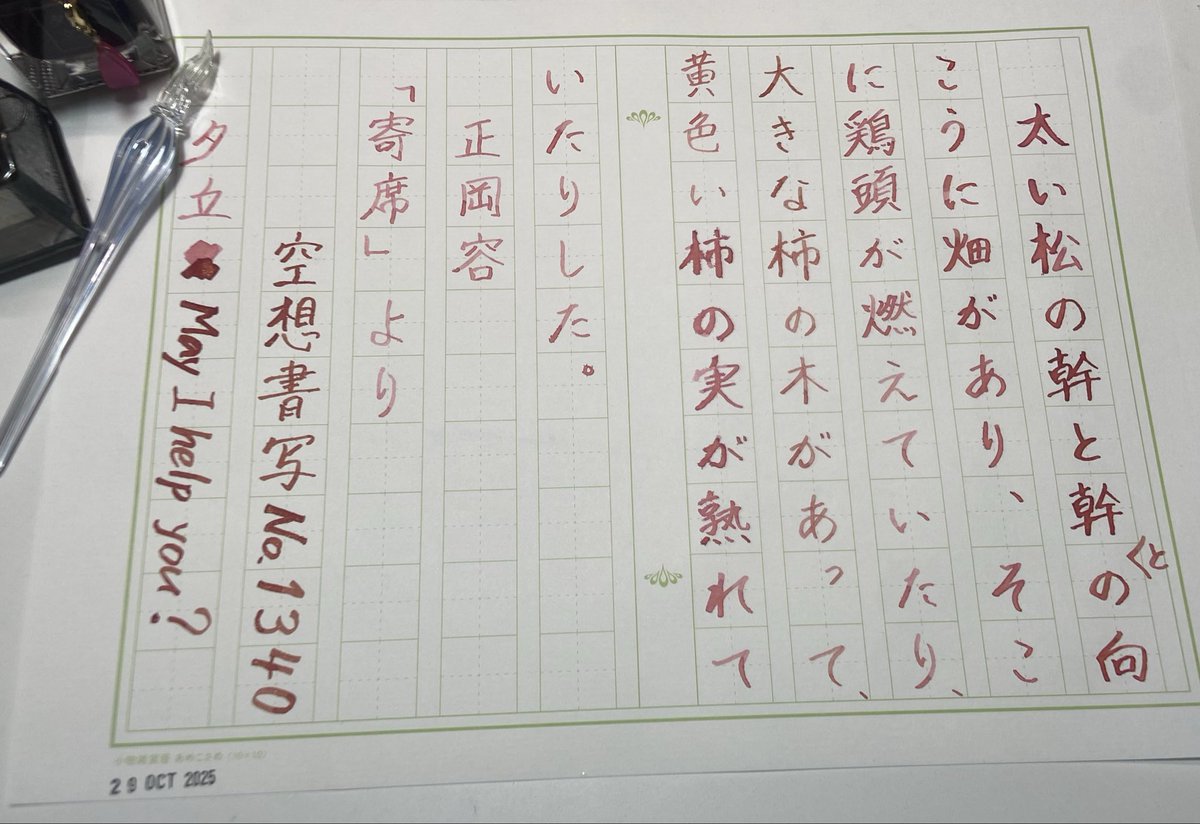 太い松の幹と幹の向
くと
こうに畑があり、そこ
に鶏頭が燃えていたり、
大きな柿の木があって、
黄色い柿の実が熟れて
いたりした。
正岡容
「寄席」より
空想書写No.1340
夕丘 May I help you?
29 OCT 2025